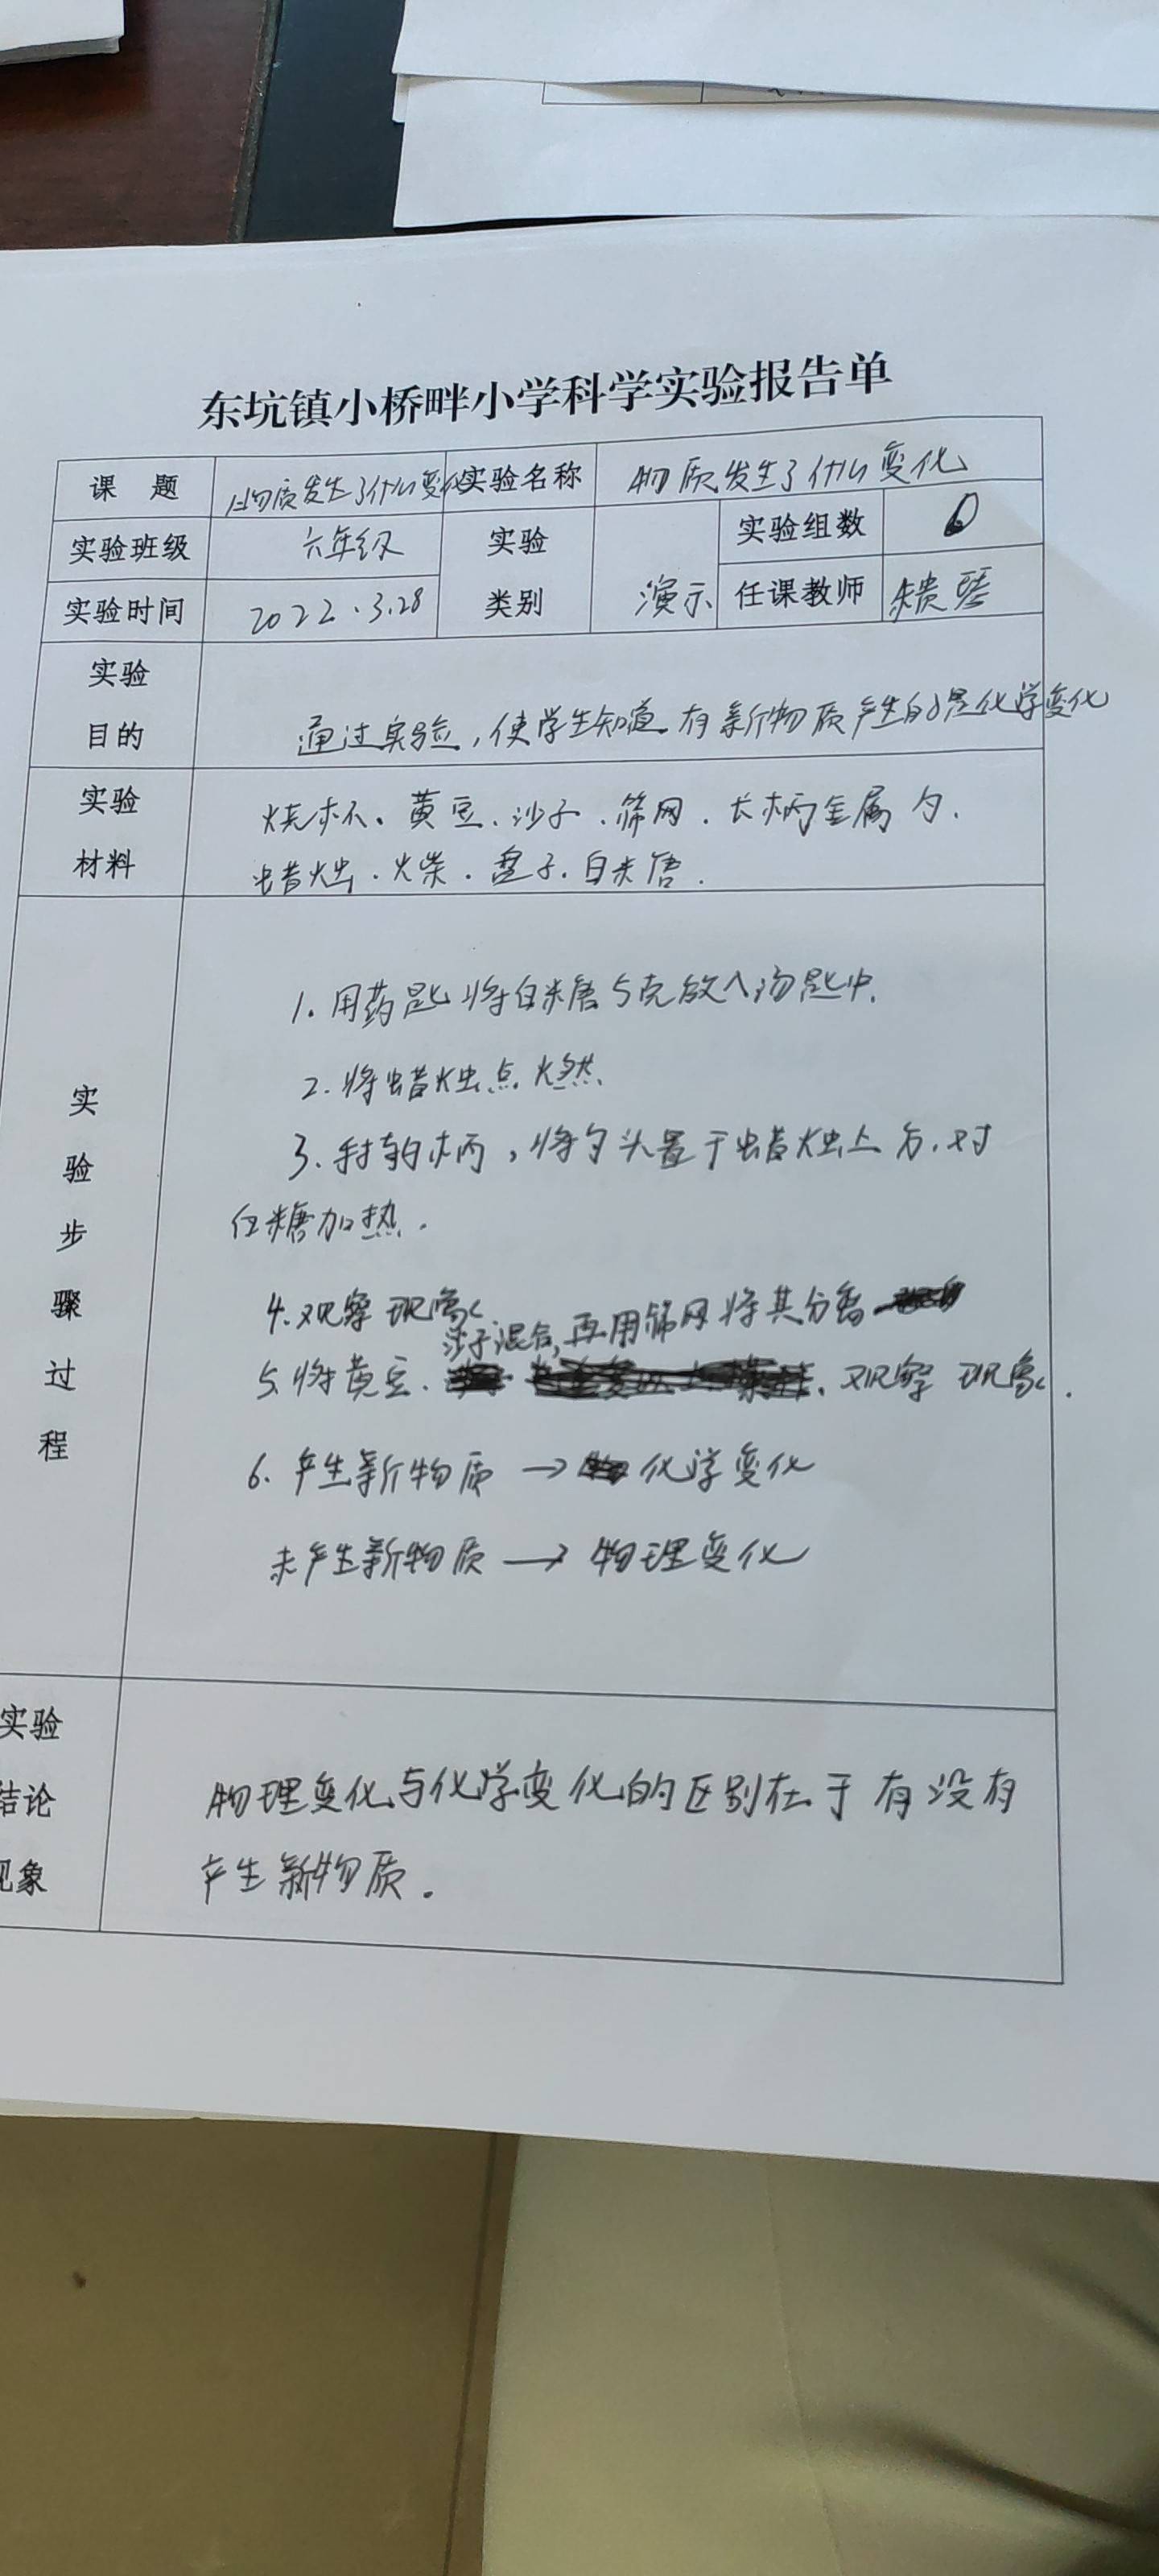 东坑镇小桥畔小学科学实验报告单
课 题 物质发生了什么变化 实验名称 物质发生了什么变化
实验班级 六年级 实验 实验组数
实验时间 2022.3.28 类别 演示 任课教师
实验
目的 通过实验,使学生知道有新物质产生的是化学变化
实验 烧杯、黄豆、沙子、筛网、长柄金属勺、
材料 蜡烛、火柴、盘子、白糖.
实验步骤过程
1.用药匙将白糖5克放入汤匙中.
2.将蜡烛点燃
3. 柄,将勺头置于蜡烛上方,对
白糖加热.
4.观察现象
沙子混合,再用筛网将其分离
5.将黄豆、观察现象.
6.产生新物质→化学变化
未产生新物质→物理变化
实验
结论 物理变化与化学变化的区别在于有没有
现象 产生新物质.